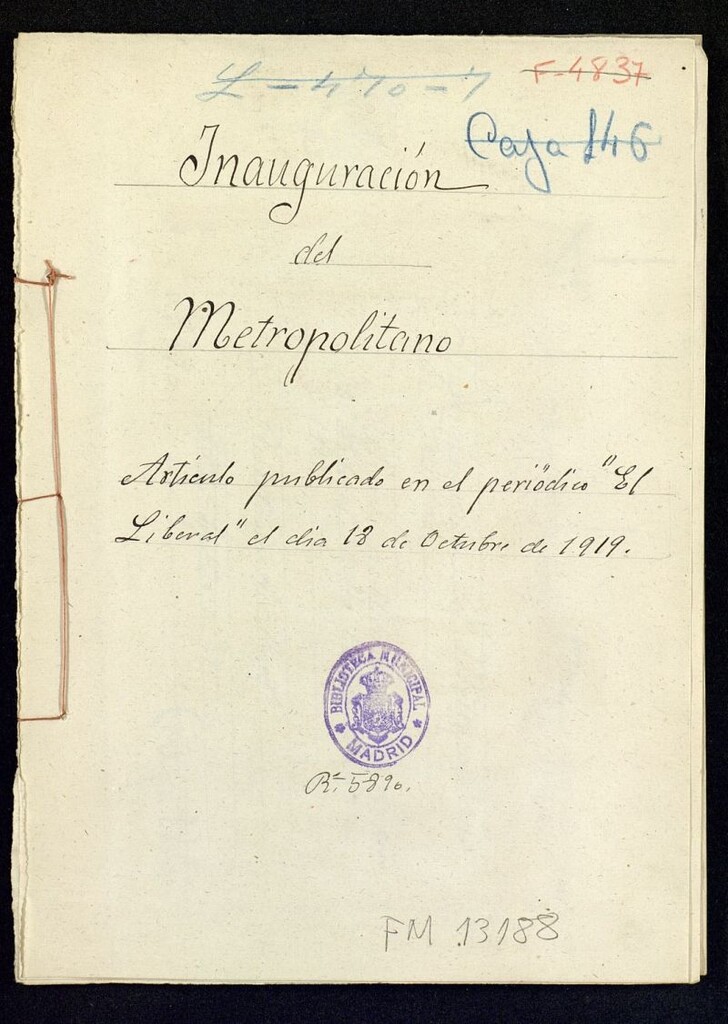 L-470-7
F-4837
Caja 146
Inauguración
del
Metropolitano
Artículo publicado en el periódico "El
Liberal" el dia 18 de Octubre de 1919.
BIBLIOTECA MUNICIPAL
MADRID
R.ª 5890.
FM 13188